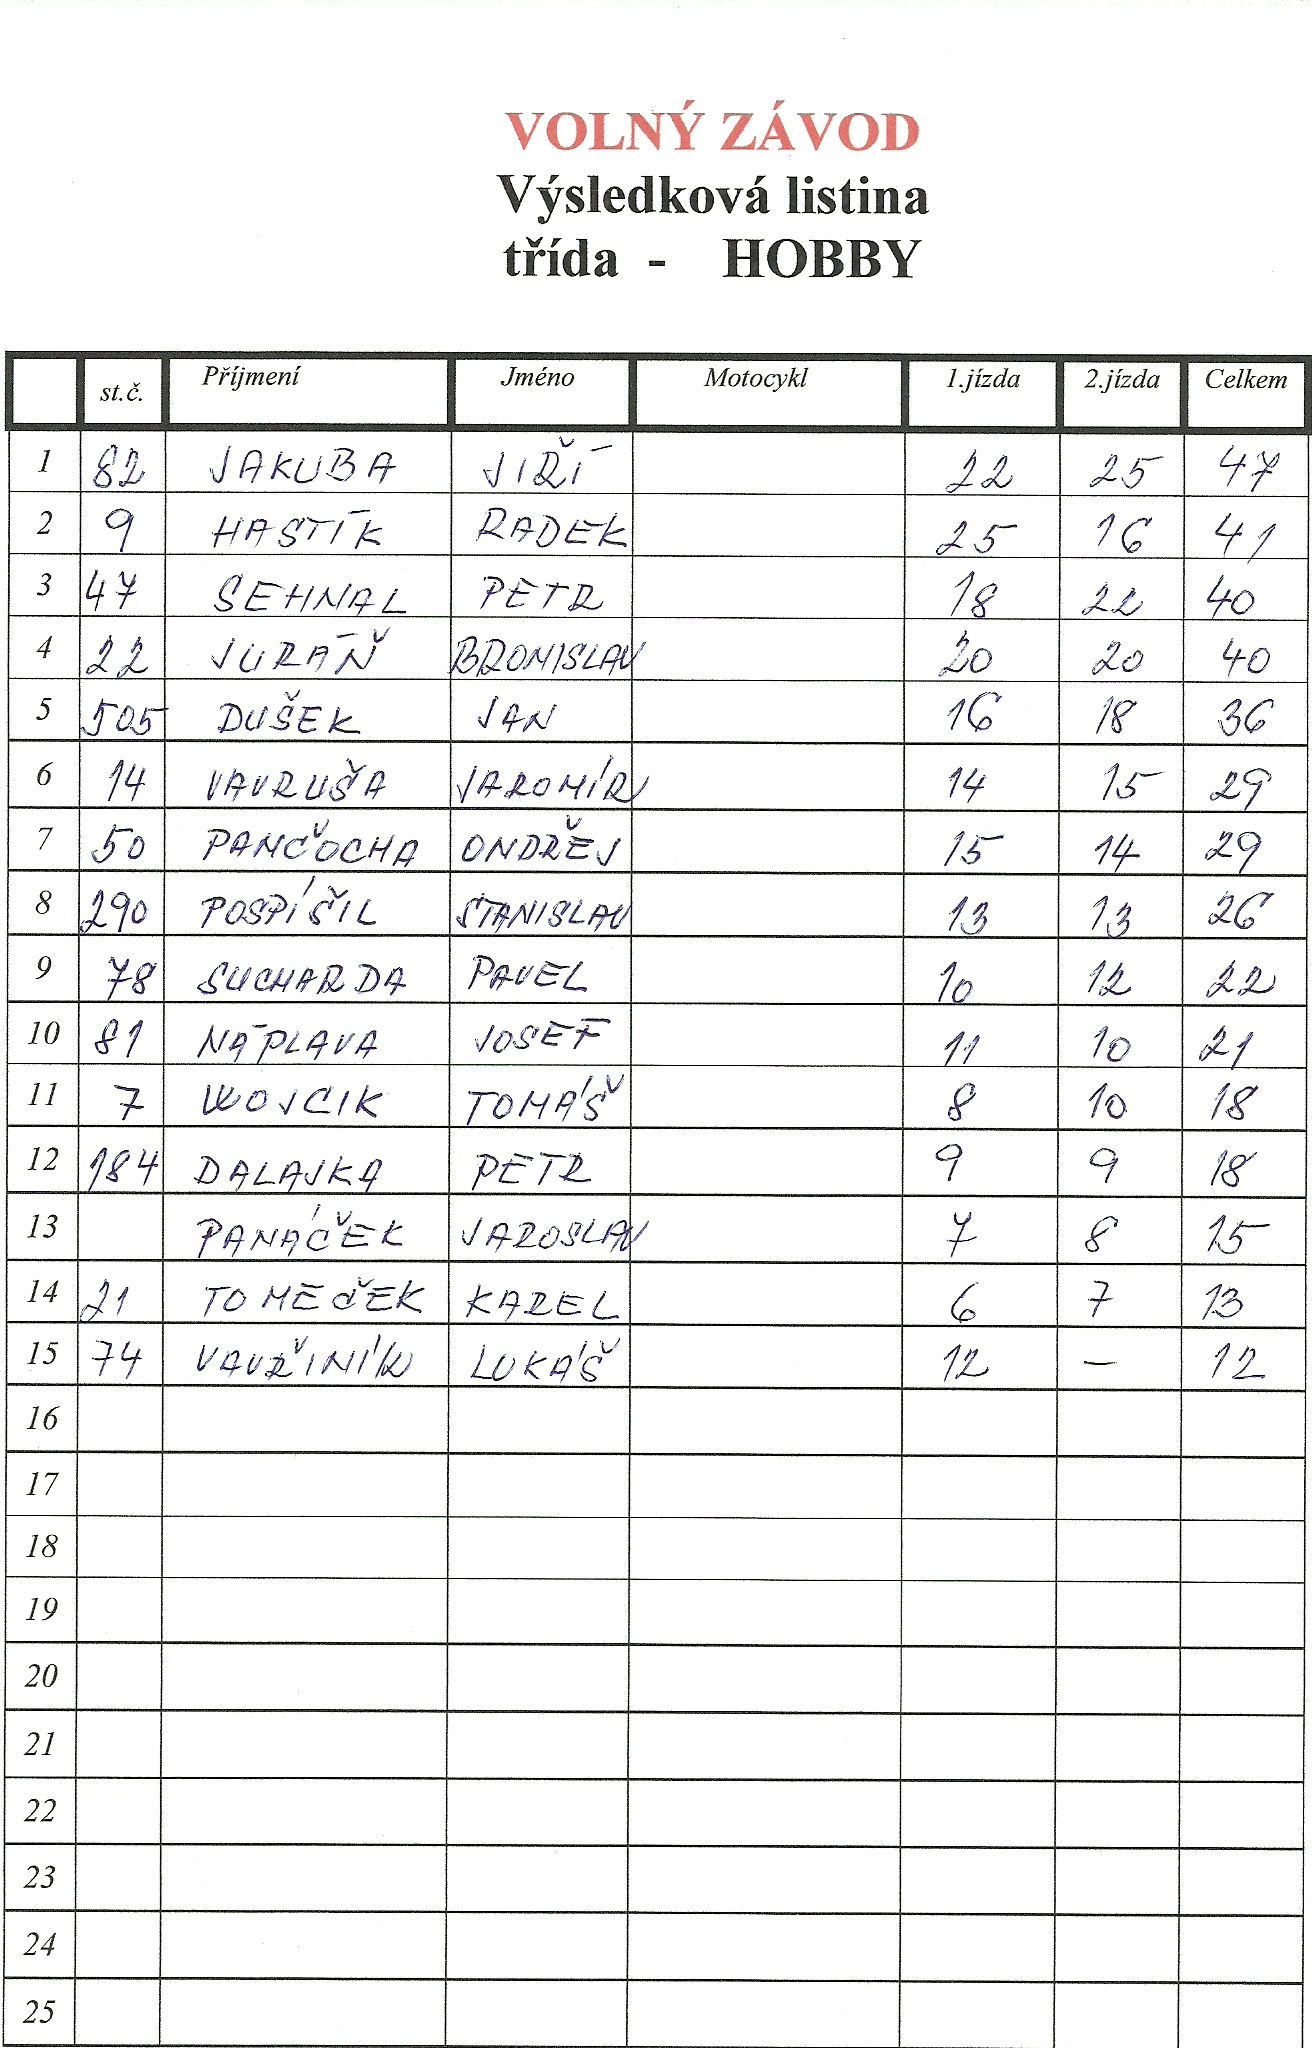 VOLNÝ ZÁVOD
Výsledková listina
třída - HOBBY
st.č. Příjmení Jméno Motocykl 1.jízda 2.jízda Celkem
1 82 JAKUBA JIŘÍ 22 25 47
2 9 HASTÍK RADEK 25 16 41
3 47 SEHNAL PETR 18 22 40
4 22 JURÁŇ BRONISLAV 20 20 40
5 505 DUŠEK JAN 16 18 36
6 14 VAVRUŠA JAROMÍR 14 15 29
7 50 PANČOCHA ONDŘEJ 15 14 29
8 290 POSPÍŠIL STANISLAV 13 13 26
9 78 SUCHARDA PAVEL 10 12 22
10 81 NÁPLAVA JOSEF 11 10 21
11 7 WOJCIK TOMÁŠ 8 10 18
12 184 DALAJKA PETR 9 9 18
13 PANÁČEK JAROSLAV 7 8 15
14 21 TOMEČEK KAREL 6 7 13
15 74 VAVŘINÍK LUKÁŠ 12 – 12
16
17
18
19
20
21
22
23
24
25